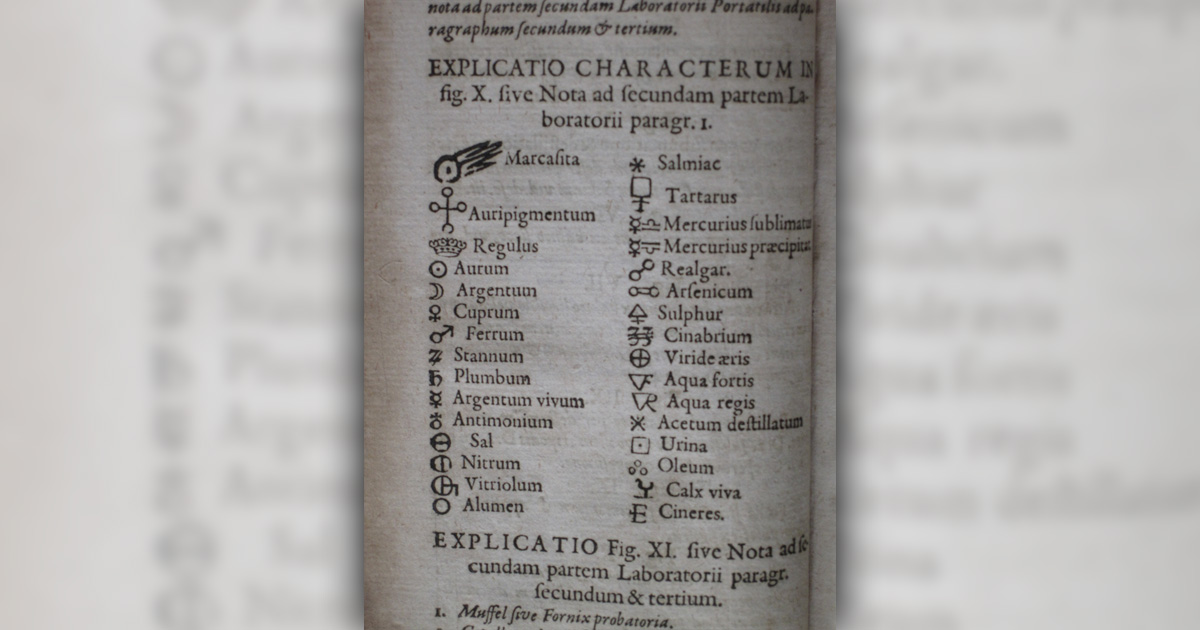 nota ad partem ſecundam Laboratorii Portatilis ad pa-
ragraphum ſecundum & tertium.
EXPLICATIO CHARACTERUM IN
fig. X. ſive Nota ad ſecundam partem La-
boratorii paragr. 1.
Marcaſita
Auripigmentum
Regulus
☉ Aurum
☽ Argentum
♀ Cuprum
♂ Ferrum
♃ Stannum
♄ Plumbum
☿ Argentum vivum
♁ Antimonium
Sal
Nitrum
Vitriolum
Alumen
Salmiac
Tartarus
Mercurius ſublimatus
Mercurius præcipitat
Realgar.
Arſenicum
Sulphur
Cinabrium
Viride æris
Aqua fortis
Aqua regis
Acetum deſtillatum
Urina
Oleum
Calx viva
Cineres.
EXPLICATIO Fig. XI. ſive Nota ad ſe-
cundam partem Laboratorii paragr.
ſecundum & tertium.
1. Muffel ſive Fornix probatoria.